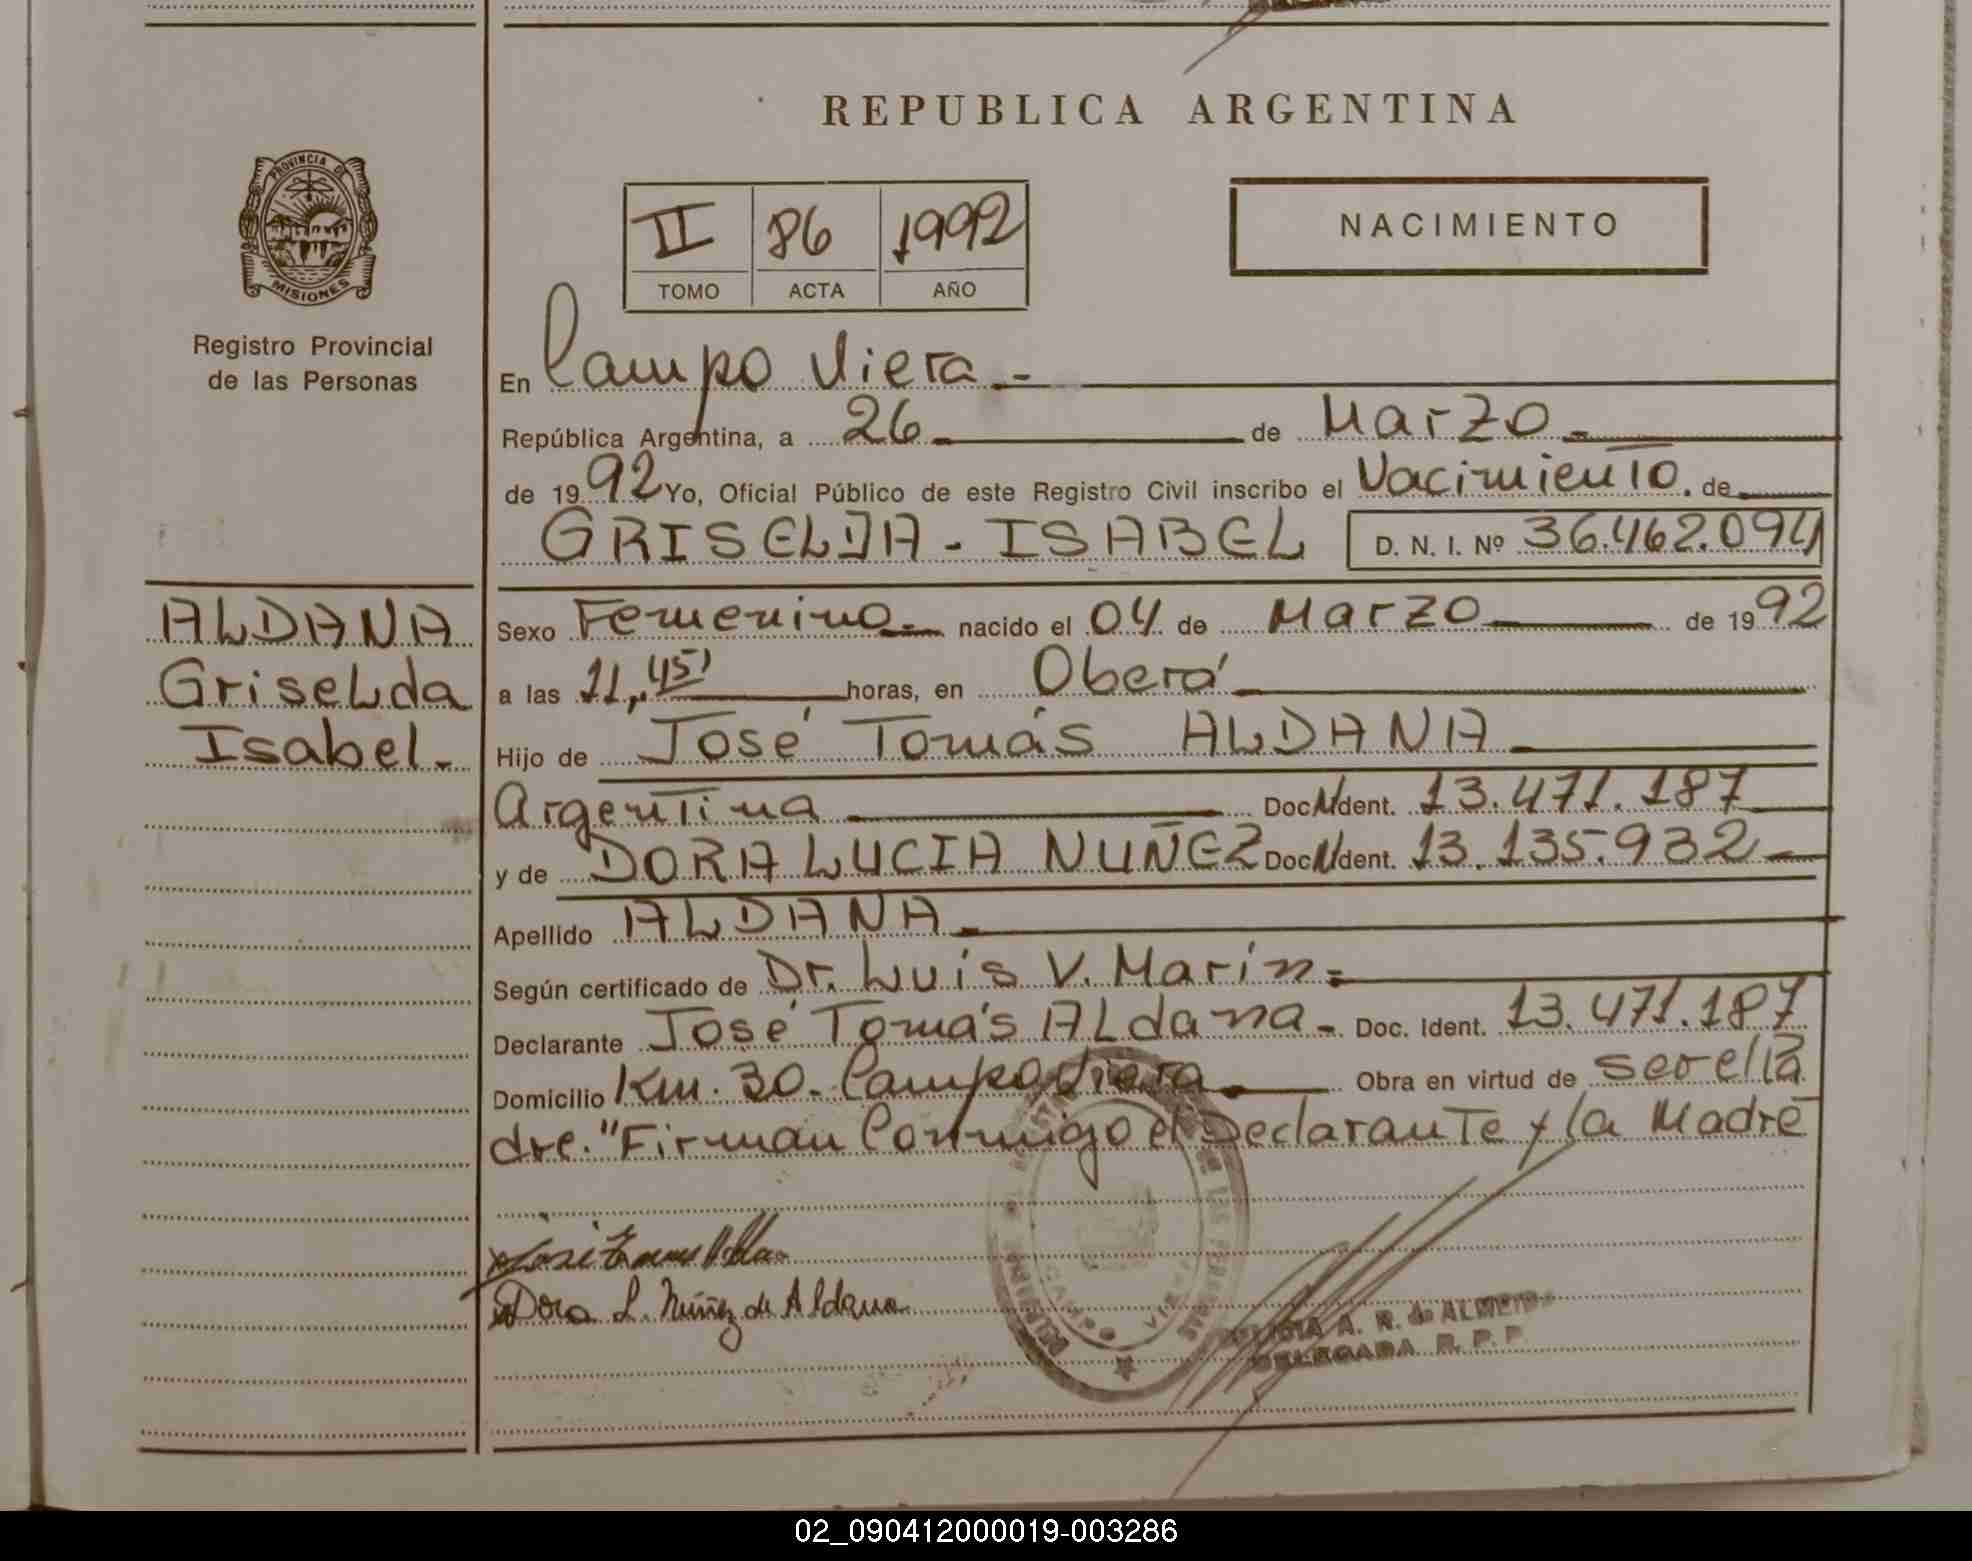 REPUBLICA ARGENTINA
PROVINCIA DE
MISIONES
Registro Provincial
de las Personas
II 86 1992
TOMO ACTA AÑO
NACIMIENTO
En Campo Viera.-
República Argentina, a 26 de Marzo.-
de 1992 Yo, Oficial Público de este Registro Civil inscribo el Nacimiento. de
GRISELDA - ISABEL D. N. I. Nº 36.462.094
ALDANA
Griselda
Isabel.-
Sexo Femenino.- nacido el 04 de Marzo de 1992
a las 11,45' horas, en Oberá
Hijo de José Tomás ALDANA
Argentina Doc. Ident. 13.471.187
y de DORA LUCIA NUÑEZ Doc. Ident. 13.135.932
Apellido ALDANA.-
Según certificado de Dr. Luis V. Marín.=
Declarante José Tomás ALdana - Doc. Ident. 13.471.187
Domicilio Km. 30. Campo Viera Obra en virtud de ser el Pa
dre. "Firman Conmigo el Declarante y la Madre
Dora L. Núñez de Aldana
A. R. de ALMEIDA
DELEGADA R. P. P.
02_090412000019-003286